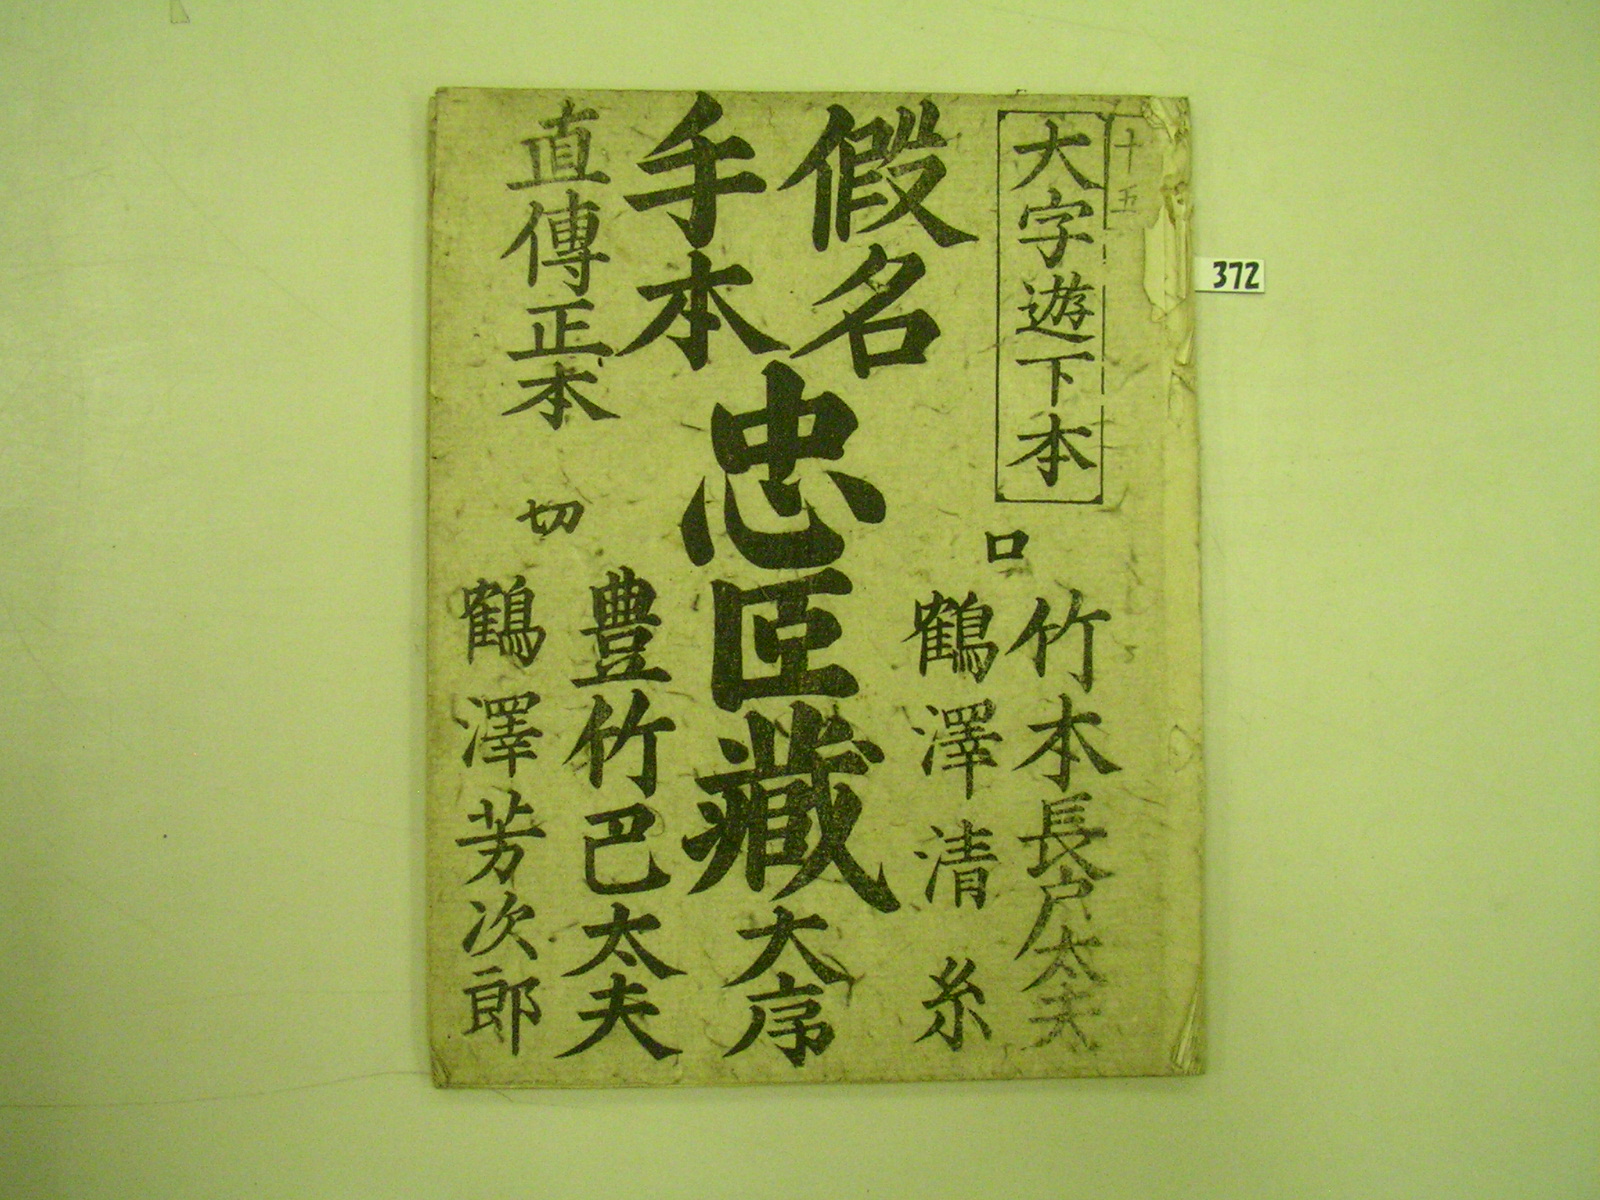 十五
大字遊下本
假名
手本
忠臣藏
大序
直傳正本
口
竹本長戸太夫
鶴澤清糸
切
豊竹巴太夫
鶴澤芳次郎
372